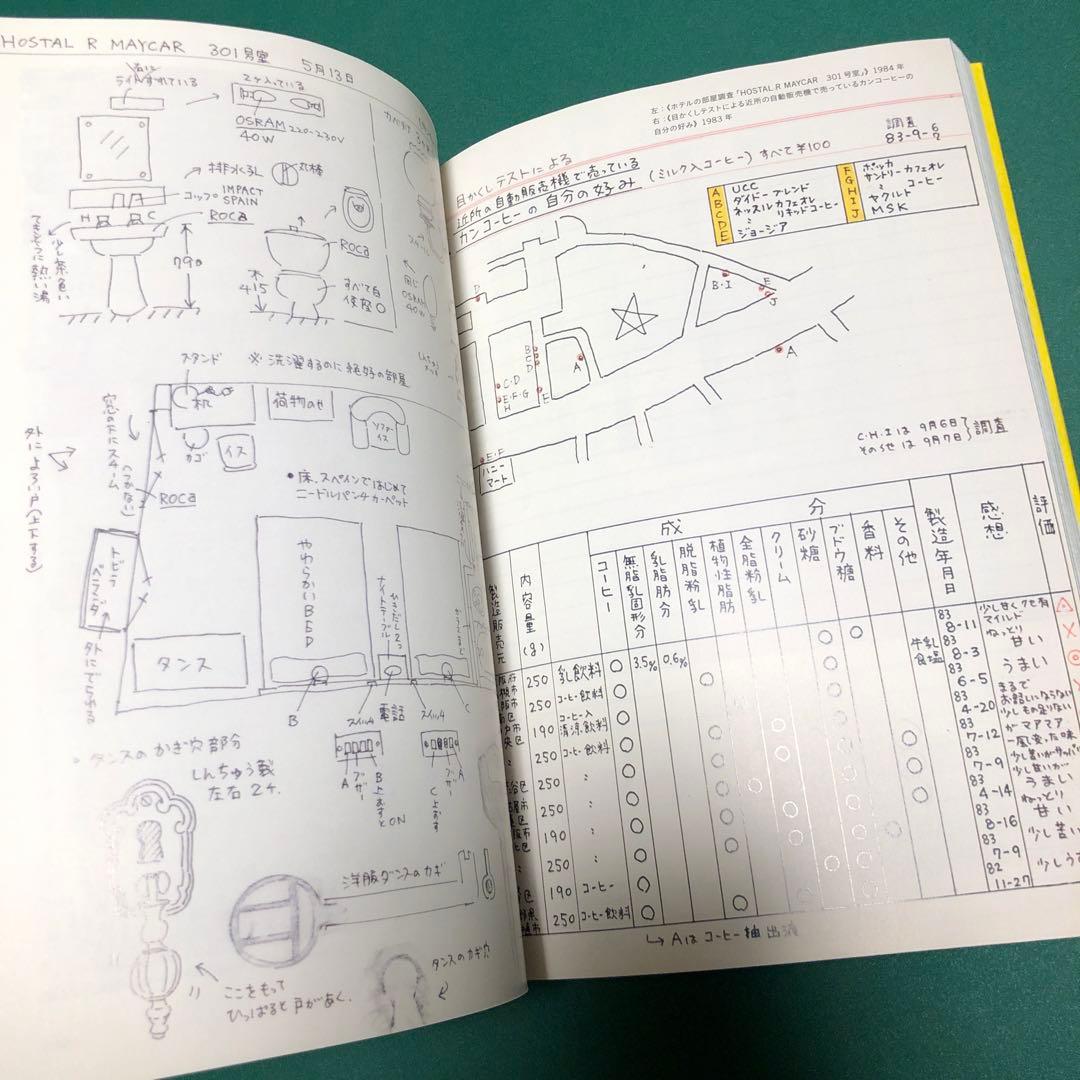 HOSTAL R MAYCAR 301号室 5月13日
ライトがすれている
2ヶ入っている
OSRAM 220-230V
40W
排水くるし
丸棒
コップ IMPACT
SPAIN
H C
ROCA
790
少し茶色い
てきせつに熱い湯
ROCA
415
すべて白
便座○
同じ
OSRAM
40W
スタンド
※洗濯するのに絶好の部屋
机
荷物のせ
ソファーイス
カゴ
イス
窓の下にスチーム
(つかない)
ROCA
外によろい戸(上下する)
●床、スペインではじめて
ニードルパンチカーペット
トビラ
ベランダ
外にでられる
やわらかいBED
ナイトテーブル
ひきだし2つ
タンス
B
スイッチ
電話
スイッチ
C
A
ブザー
B上おすとON
ブザー
A
C上おす
タンスのかぎ穴部分
しんちゅう製
左右2ヶ
洋服ダンスのカギ
タンスのカギ穴
ここをもって
ひっぱると戸があく。
左:《ホテルの部屋調査「HOSTAL R MAYCAR 301号室」》1984年
右:《目かくしテストによる近所の自動販売機で売っているカンコーヒーの
自分の好み》1983年
調査
83-9-6
7
目かくしテストによる
近所の自動販売機で売っている
カンコーヒーの自分の好み
(ミルク入コーヒー)すべて¥100
A UCC
B ダイドーブレンド
C ネッスルカフェオレ
D 〃 リキッドコーヒー
E ジョージア
F ポッカ
G サントリーカフェオレ
H 〃 コーヒー
I ヤクルト
J MSK
D
B・I
E
J
B
C
D
A
A
C・D
E・F・G
H
E
E・F
ハニー
マート
C・H・Iは9月6日
その他は9月7日
調査
成分
製造販売元
内容量(g)
コーヒー
無脂乳固形分
乳脂肪分
脱脂粉乳
植物性脂肪
全脂粉乳
クリーム
砂糖
ブドウ糖
香料
その他
製造年月日
感想
評価
250 乳飲料 ○ 3.5% 0.6% 83 8-11 少し甘くクセ有 マイルド
250 コーヒー飲料 牛乳 食塩 83 8-3 ねっとり 甘い
190 コーヒー入 清涼飲料 83 6-5 うまい
250 コーヒー飲料 83 4-20 まるで お話にならない
250 〃 83 7-12 少しもの足りない がマアマア
250 83 7-9 一風変った味
250 83 4-14
190 〃 83 8-16 ねっとり 甘い
250 〃 83 7-9
190 コーヒー 82 11-27
250 コーヒー飲料
↳Aはコーヒー抽出液